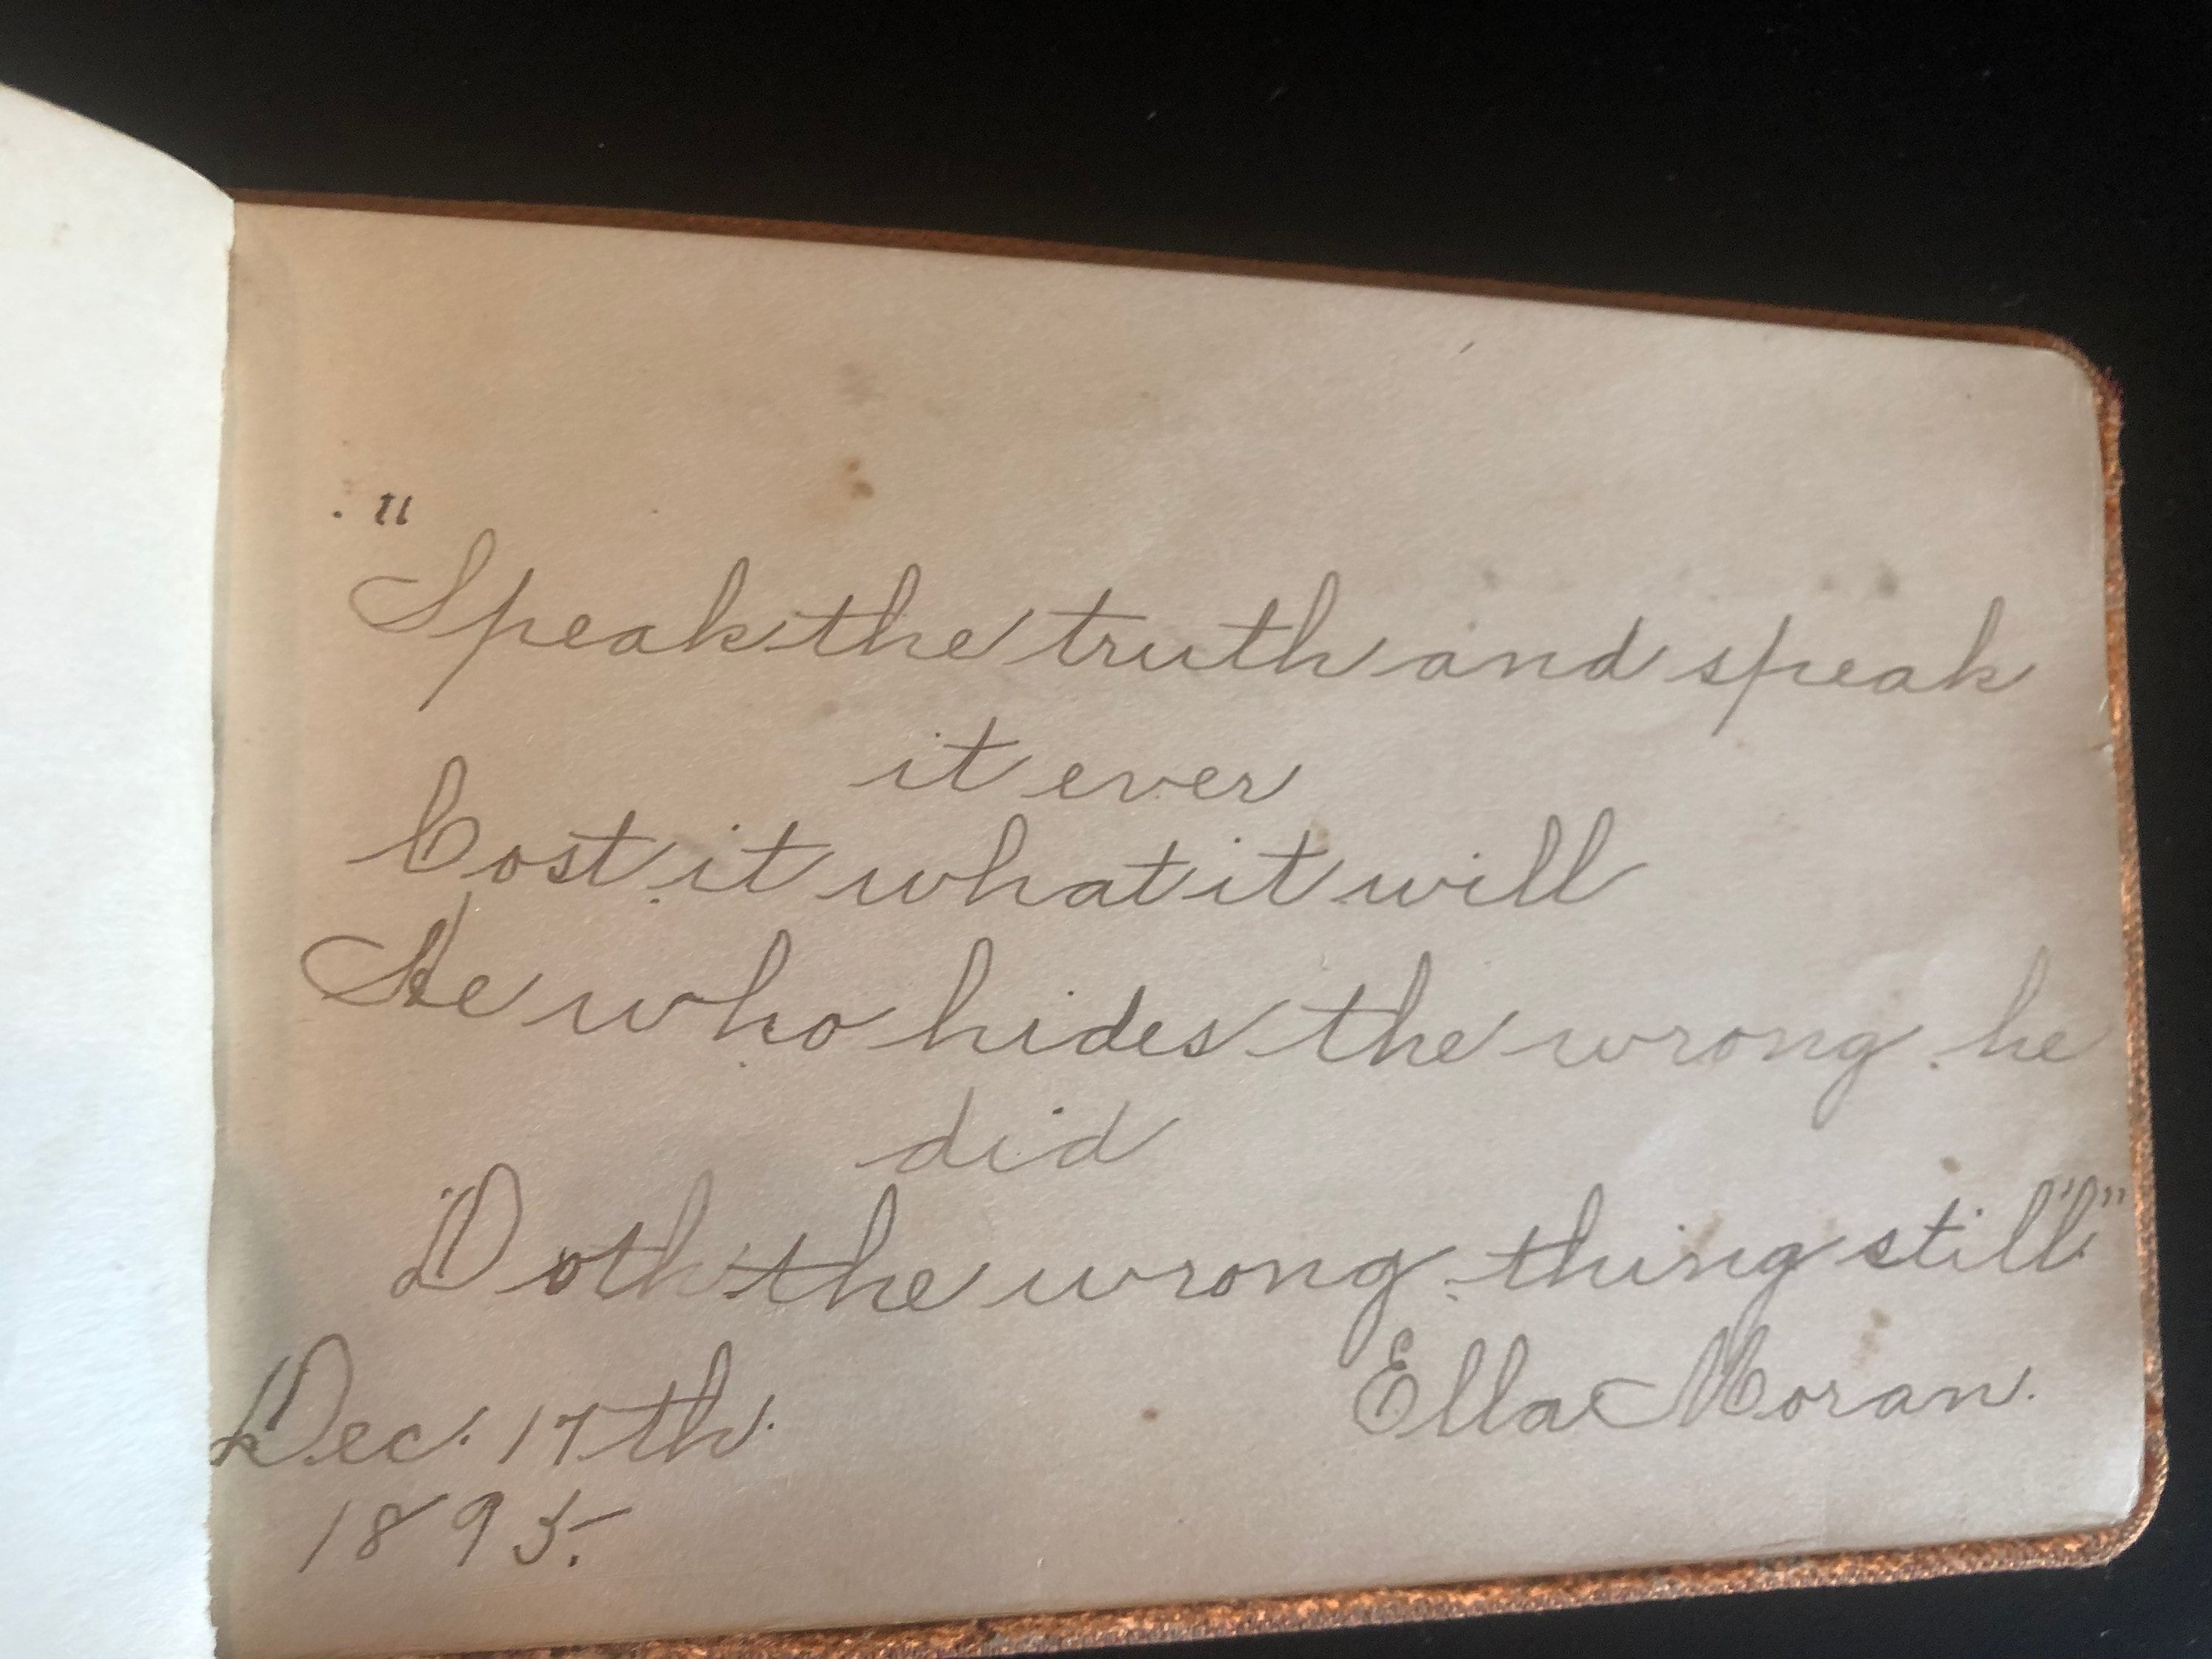 "Speak the truth and speak
it ever
Cost it what it will
He who hides the wrong he
did
Doth the wrong thing still"
Ella Moran.
Dec. 17th.
1895.